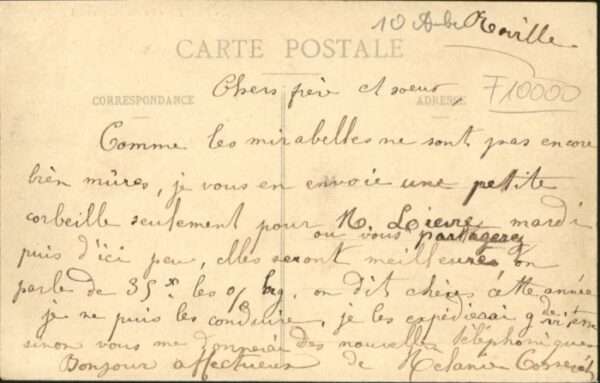 10 Aube Réville
CARTE POSTALE
Chers frère et soeur
CORRESPONDANCE ADRESSE
F10000
Comme les mirabelles ne sont pas encore
bien mûres, je vous en envoie une petite
corbeille seulement pour M. Lièvre, mardi
ou vous partagerez
puis d'ici peu, elles seront meilleures on
parle de 35 les % kg. on dit chères cette année
je ne puis les conduire, je les expédierai
sinon vous me donnerez des nouvelles Téléphoniques
Bonjour affectueux de Mélanie